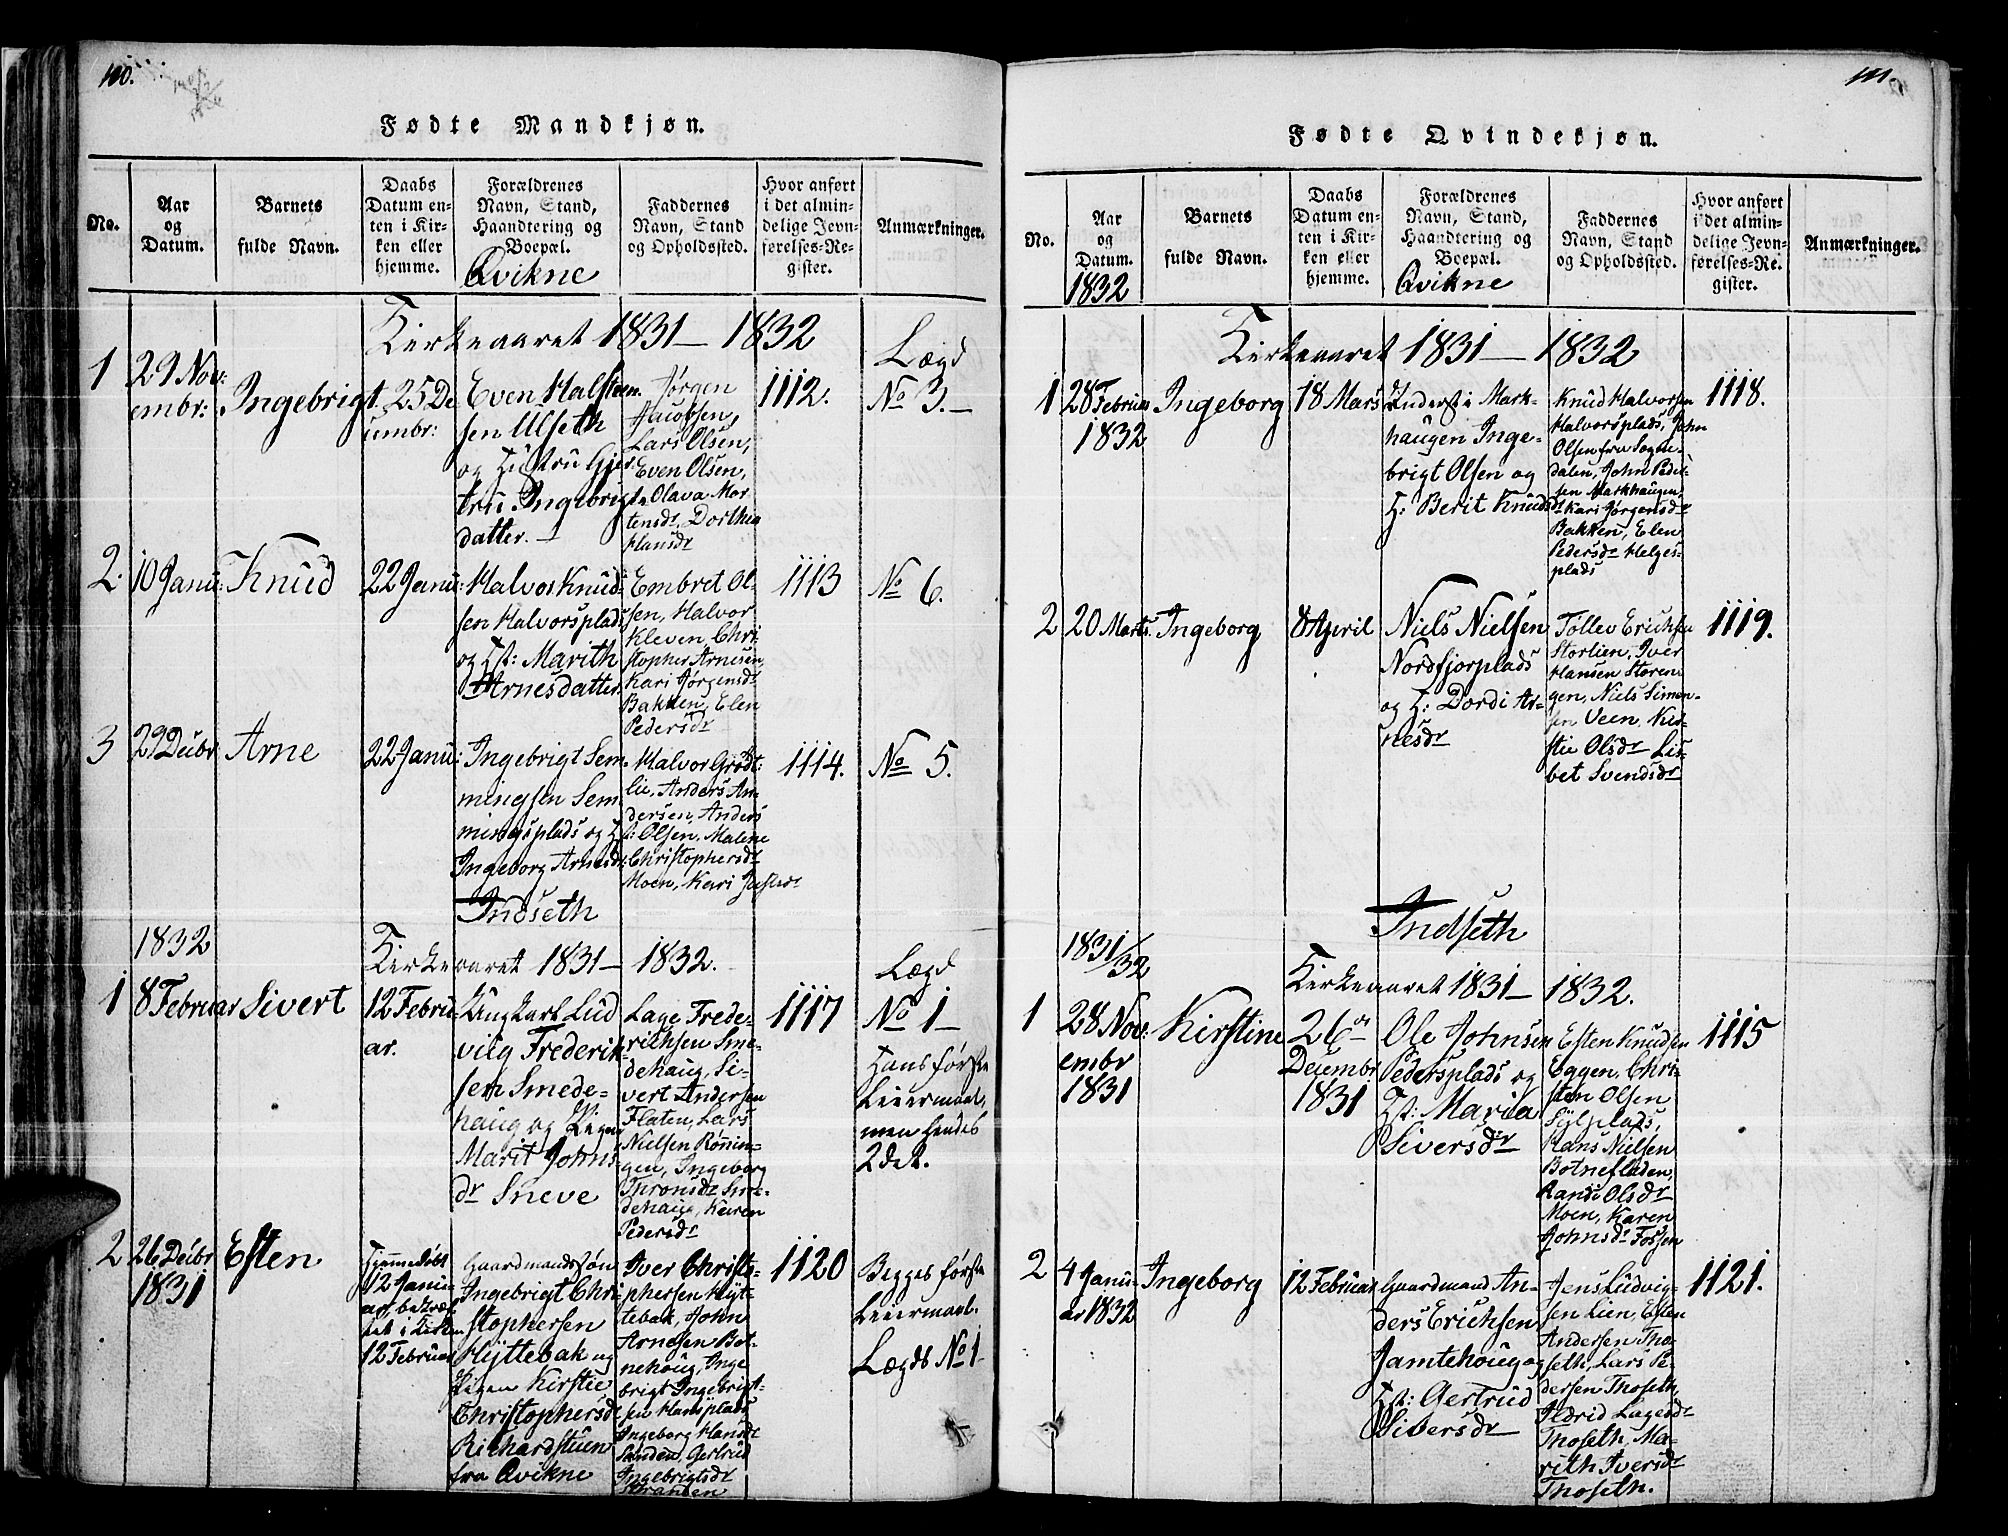 110.
Fødte Mandkjøn.
No.
Aar
og
Datum.
Barnets
fulde Navn.
Daabs
Datum en-
ten i Kir-
ken eller
hjemme.
Forældrenes
Navn, Stand,
Haandtering og
Boepæl.
Qvikne
Faddernes
Navn, Stand
og Opholdssted.
Hvor anført
i det almin-
delige Jevn-
førelses-Re-
gister.
Anmærkninger.
Kirkeaaret 1831 - 1832
1
29 Nov:
embr:
Ingebrigt
25 De
cembr:
Even Halsteen
sen Ulseth
og Hustru Gjer
tru Ingebrigts
datter. -
Jørgen
Jacobsen,
Lars Olsen,
Even Olsen,
Olava Mor
tensdr, Dorthea
Hansdr
1112.
Lægd
No 3. -
2.
10 Janu:
Knud
22 Janu:
Halvor Knud
sen Halvorsplads
og Hst: Marith
Arnesdatter.
Embret Ol
sen, Halvor
Kleven, Chri
stopher Arnesen,
Kari Jørgensdr
Bakken, Elen
Pedersdr
1113
No 6.
3
29 Decbr
Arne
22 Janu:
Ingebrigt Sem
mingsen Sem
mingsplads og H
Ingeborg Arnesdr
Halvor Grødt:
lie, Anders An
dersen, Anders
Olsen, Malene
Christophersdr
Moen, Kari
1114.
No 5.
Indseth
1832
Kirkeaaret 1831 - 1832.
1
8 Februar
Sivert
12 Febru
ar.
Ungkarl Lud
vig Frederik
sen Smede-
haug og Pigen
Marit Johns
dr Sneve
Lage Frede-
richsen Sme-
dehaug, Si-
vert Andersen
Flaten, Lars
Nielsen Rønnin-
gen, Ingeborg
Thronsdr Sme-
dehaug, Karen
Pedersdr
1117
Lægd
No 1 -
Hans første
Leiermaal,
men hendes
2det.
2
26 Decbr
1831
Esten
Hjemmedøbt
12 Janu
ar, bekræf
tet i Kirken
12 Februar
Gaardmandssøn
Ingebrigt Chri
stophersen
Hyttebak og
Pigen Kirstie
Christophersdr
Richardstuen
fra Qvikne
Iver Christo-
phersen Hyt-
tebak, John
Arnesen Bot-
nehaug, Inge
brigt Ingebrigt-
sen Hansplads
Ingeborg Hansdr
Sanden, Gertrud
Ingebrigtsdr
Stranden
1120
Begges første
Leiermaal.
Lægds No 1
111.
Fødte Qvindekjøn.
No.
Aar
og
Datum.
1832
Barnets
fulde Navn.
Daabs
Datum en-
ten i Kir-
ken eller
hjemme.
Forældrenes
Navn, Stand,
Haandtering og
Boepæl.
Qvikne
Faddernes
Navn, Stand
og Opholdssted.
Hvor anført
i det almin-
delige Jevn-
førelses-Re-
gister.
Anmærkninger.
Kirkeaaret 1831 - 1832
1
28 Februar
1832
Ingeborg
18 Marts
Inderst i Mark-
haugen Inge-
brigt Olsen og
H: Berit Knudsdr
Knud Halvorsen
Halvorsplads, John
Olsen fra Sogn-
dalen, John Peder
sen Markhaugen,
Kari Jørgensdr
Bakken, Elen
Pedersdr Helges-
plads
1118.
2
20 Marts
Ingeborg
8 April
Niels Nielsen
Nordfjorplads
og H: Dordi Ar-
nesdr
Tollev Erichsen
Storlien, Iver
Hansen Støren
gen, Niels Simon-
sen Veen, Kir-
stie Olsdr Lis-
bet Svendsdr
1119.
Indseth
1831/32
Kirkeaaret 1831 - 1832.
1
28 Nov:
embr
1831
Kirstine
26
Decembr
1831
Ole Johnsen
Pedersplads og
Hst: Maria
Siversdr
Esten Knudsen
Eggen, Chri-
sten Olsen
Sylplads,
Hans Nielsen
Botnefladen,
Randi Olsdr
Moen, Karen
Johnsdr Fossen
1115
2
4 Janu
ar 1832
Ingeborg
12 Februar
Gaardmand An-
ders Erichsen
Jamtehoug og
Hst: Gertrud
Siversdr
Jens Ludvig-
sen Lien, Esten
Andersen Tho-
seth, Lars Pe-
dersen Thoseth,
Ildrid Lagesdr
Thoseth, Ma-
rith Iversdr
Thoseth.
1121.